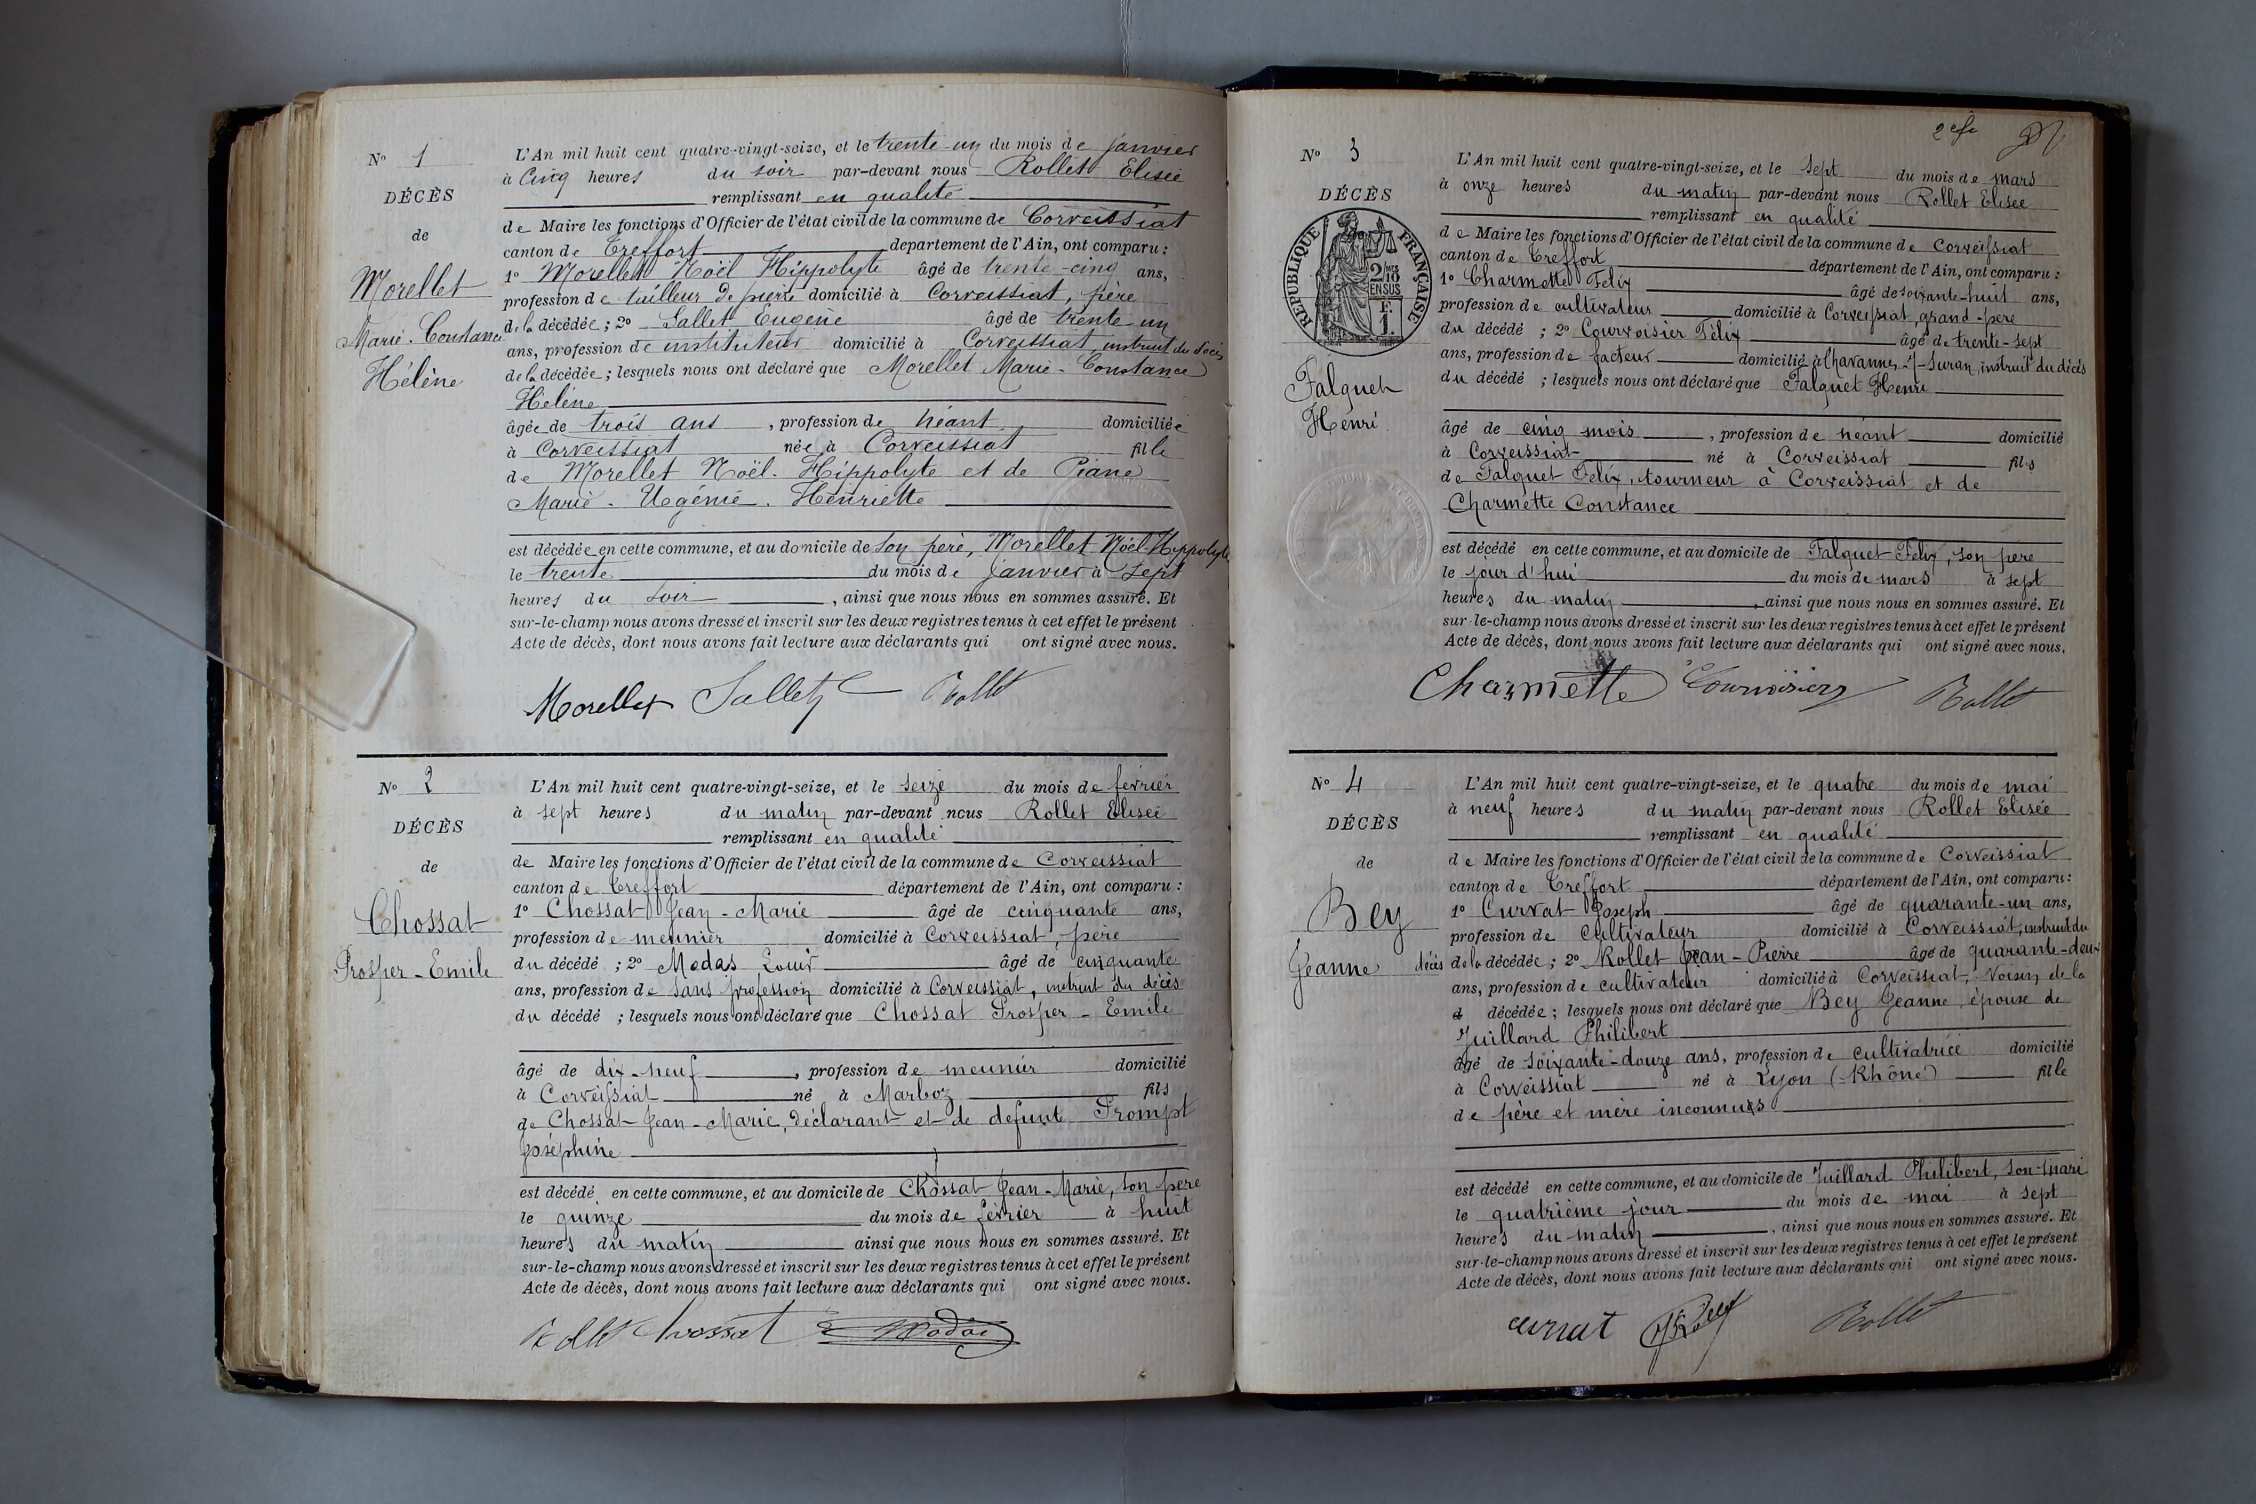 N° 1
DÉCÈS
de
Morellet
Marie-Constance
Hélène
L'An mil huit cent quatre-vingt-seize, et le trente-un du mois de janvier
à cinq heures du soir par-devant nous Rollet Elisée
remplissant en qualité
de Maire les fonctions d'Officier de l'état civil de la commune de Corveissiat
canton de Treffort département de l'Ain, ont comparu :
1° Morellet Noël Hippolyte âgé de trente-cinq ans,
profession de tailleur de pierre domicilié à Corveissiat, père
de la décédée ; 2° Sallet Eugène âgé de trente-un
ans, profession de instituteur domicilié à Corveissiat, instruit du décès
de la décédée ; lesquels nous ont déclaré que Morellet Marie-Constance
Hélène
âgée de trois ans , profession de néant domiciliée
à Corveissiat née à Corveissiat fille
de Morellet Noël-Hippolyte et de Piane
Marie-Ugénie-Henriette
est décédée en cette commune, et au domicile de son père, Morellet Noël-Hyppolyte
le trente du mois de janvier à sept
heures du soir , ainsi que nous nous en sommes assuré. Et
sur-le-champ nous avons dressé et inscrit sur les deux registres tenus à cet effet le présent
Acte de décès, dont nous avons fait lecture aux déclarants qui ont signé avec nous.
Morellet Sallet Rollet
N° 2
DÉCÈS
de
Chossat
Prosper-Emile
L'An mil huit cent quatre-vingt-seize, et le seize du mois de février
à sept heures du matin par-devant nous Rollet Elisée
remplissant en qualité
de Maire les fonctions d'Officier de l'état civil de la commune de Corveissiat
canton de Treffort département de l'Ain, ont comparu :
1° Chossat Jean-Marie âgé de cinquante ans,
profession de meunier domicilié à Corveissiat, père
du décédé ; 2° Modas Louis âgé de cinquante
ans, profession de sans profession domicilié à Corveissiat, instruit du décès
du décédé ; lesquels nous ont déclaré que Chossat Prosper-Emile
âgé de dix-neuf , profession de meunier domicilié
à Corveissiat né à Marboz fils
de Chossat Jean-Marie, déclarant et de défunte Prompt
Joséphine
est décédé en cette commune, et au domicile de Chossat Jean-Marie, son père
le quinze du mois de février à huit
heures du matin ainsi que nous nous en sommes assuré. Et
sur-le-champ nous avons dressé et inscrit sur les deux registres tenus à cet effet le présent
Acte de décès, dont nous avons fait lecture aux déclarants qui ont signé avec nous.
Rollet Chossat Modas
N° 3
DÉCÈS
RÉPUBLIQUE FRANÇAISE
2/10 EN SUS
F. 1.
Falquet
Henri
L'An mil huit cent quatre-vingt-seize, et le sept du mois de mars
à onze heures du matin par-devant nous Rollet Elisée
remplissant en qualité
de Maire les fonctions d'Officier de l'état civil de la commune de Corveissiat
canton de Treffort département de l'Ain, ont comparu :
1° Charmette Félix âgé de soixante-huit ans,
profession de cultivateur domicilié à Corveissiat, grand-père
du décédé ; 2° Courvoisier Félix âgé de trente-sept
ans, profession de facteur domicilié à Chavannes-s-Suran, instruit du décès
du décédé ; lesquels nous ont déclaré que Falquet Henri
âgé de cinq mois , profession de néant domicilié
à Corveissiat né à Corveissiat fils
de Falquet Félix, tourneur à Corveissiat et de
Charmette Constance
est décédé en cette commune, et au domicile de Falquet Félix, son père
le jour d'hui du mois de mars à sept
heures du matin , ainsi que nous nous en sommes assuré. Et
sur-le-champ nous avons dressé et inscrit sur les deux registres tenus à cet effet le présent
Acte de décès, dont nous avons fait lecture aux déclarants qui ont signé avec nous.
Charmette Courvoisier Rollet
N° 4
DÉCÈS
de
Bey
Jeanne
L'An mil huit cent quatre-vingt-seize, et le quatre du mois de mai
à neuf heures du matin par-devant nous Rollet Elisée
remplissant en qualité
de Maire les fonctions d'Officier de l'état civil de la commune de Corveissiat
canton de Treffort département de l'Ain, ont comparu :
1° Curvat Joseph âgé de quarante-un ans,
profession de cultivateur domicilié à Corveissiat, instruit du
décès de la décédée ; 2° Rollet Jean-Pierre âgé de quarante-deux
ans, profession de cultivateur domicilié à Corveissiat, voisin de la
décédée ; lesquels nous ont déclaré que Bey Jeanne, épouse de
Juillard Philibert
âgé de soixante-douze ans, profession de cultivatrice domicilié
à Corveissiat né à Lyon (Rhône) fille
de père et mère inconnus
est décédé en cette commune, et au domicile de Juillard Philibert, son mari
le quatrième jour du mois de mai à sept
heures du matin , ainsi que nous nous en sommes assuré. Et
sur-le-champ nous avons dressé et inscrit sur les deux registres tenus à cet effet le présent
Acte de décès, dont nous avons fait lecture aux déclarants qui ont signé avec nous.
curvat Rollet